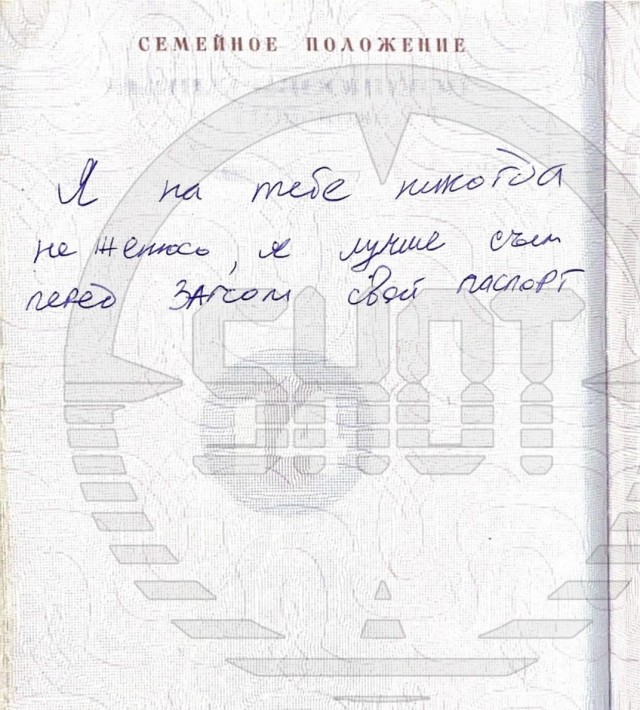 СЕМЕЙНОЕ ПОЛОЖЕНИЕ
Я на тебе никогда
не женюсь, я лучше съем
перед ЗАГСОМ свой паспорт
SHOT